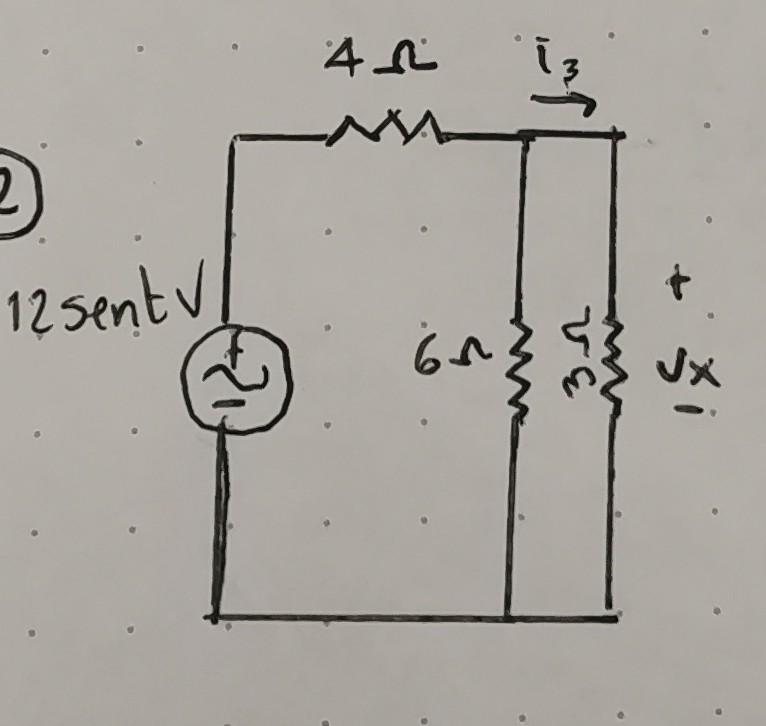 4 Ω
i3
2
12 sent V
+
−
6 Ω
3 Ω
+
Vx
−